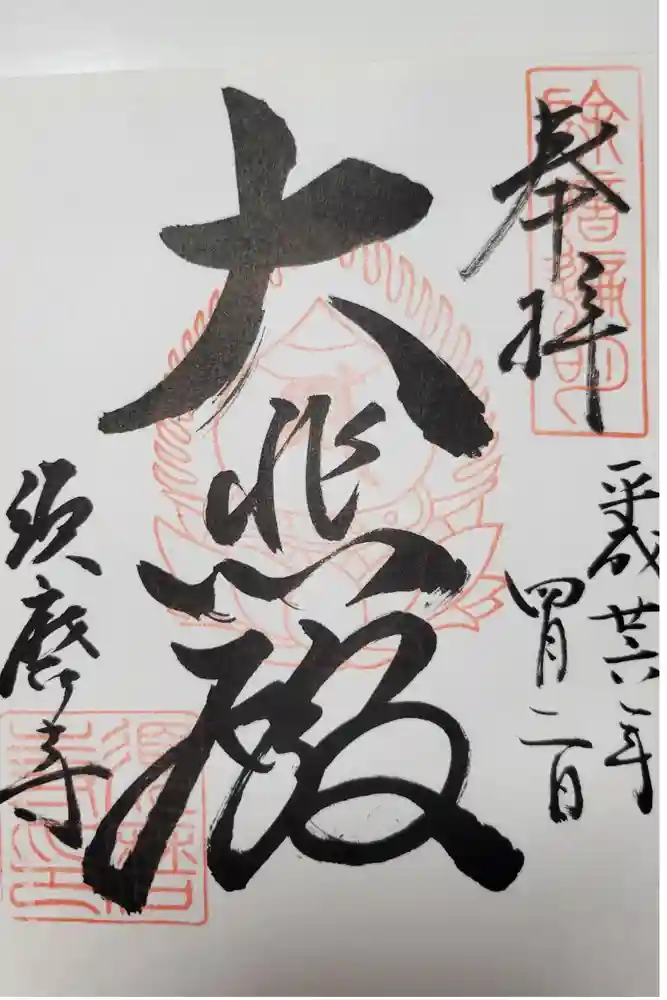 除暗遍明
奉拝
平成廿六年
四月二日
大悲殿
須磨寺